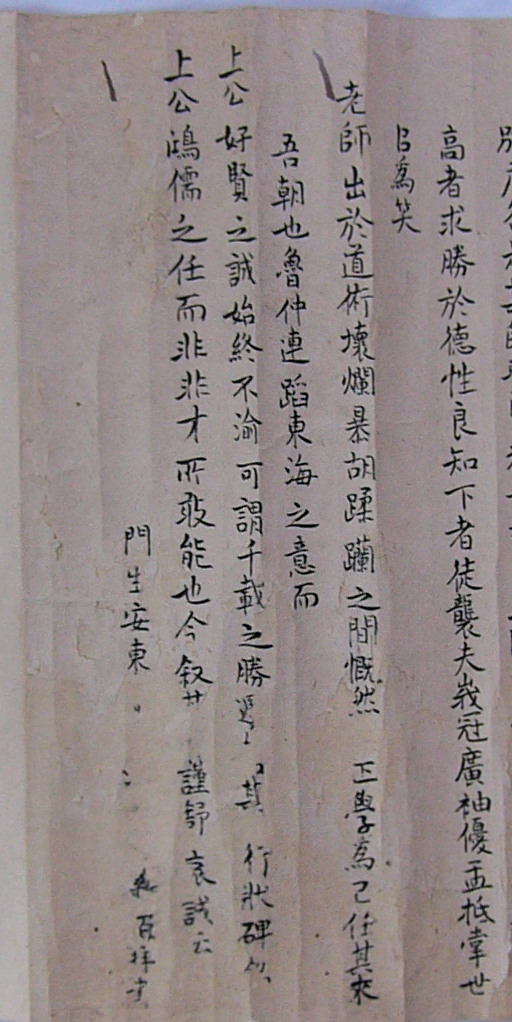 高者求勝於德性良知下者徒襲夫峩冠廣袖優孟抵掌世
㠯為笑
老師出於道術壞爛暴胡蹂躪之間慨然 正學為己任其來
吾朝也魯仲連蹈東海之意而
上公好賢之誠始終不渝可謂千載之勝 其 行狀碑
上公鴻儒之任而非非才所敢能也今叙 謹舒哀誠云
門生安東 百拜